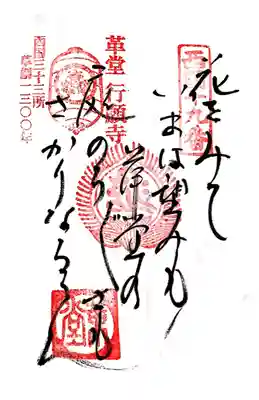 西国十九番
花をみて
いまは望みも
革堂の
庭のちくさも
さかりなるらん
革堂 行願寺
西国三十三所
草創一三〇〇年